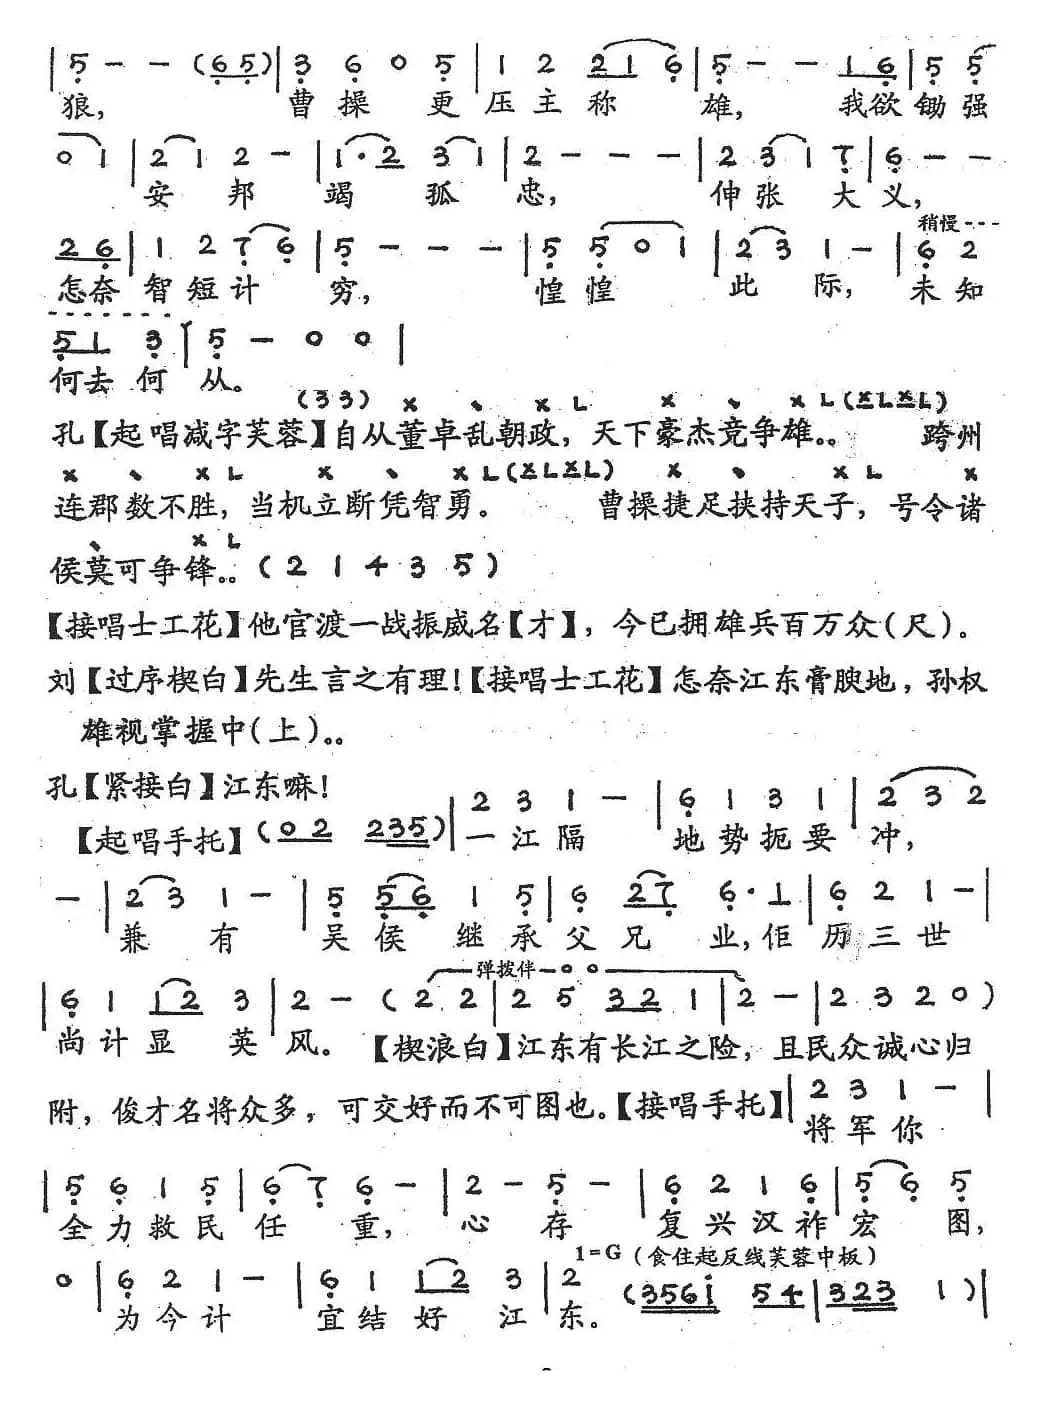 |5̣ - - (6̣5̣)|3̣ 6̣ 0 5̣|1 2 21 6̣|5̣ - - 16̣|5̣ 5̣
狼， 曹操 更压主称 雄， 我欲锄强
0 1|2 1 2 -|1·2 3 1|2 - - -|2 3 1 7̣|6̣ - -
安 邦 竭 孤 忠， 伸张 大义，
稍慢
26̣|1 2 7̣ 6̣|5̣ - - -|5̣ 5̣ 0 1|2 3 1 -|6̣ 2
怎奈智短计 穷， 惶惶 此 际， 未知
5̣1 3̣|5̣ - 0 0|
何去何 从。
(33) × 、 × L × 、 × L (×L×L)
孔【起唱减字芙蓉】自从董卓乱朝政，天下豪杰竞争雄。。 跨州
× 、 × L × 、 × L (×L×L) × 、 × L ×
连郡数不胜，当机立断凭智勇。 曹操捷足挟持天子，号令诸
、 × L
侯莫可争锋。。(2 1 4 3 5)
【接唱士工花】他官渡一战振威名【才】，今已拥雄兵百万众(尺)。
刘【过序楔白】先生言之有理！【接唱士工花】怎奈江东膏腴地，孙权
雄视掌握中(上)。。
孔【紧接白】江东嘛！
【起唱手托】(02 235)|2 3 1 -|6̣ 1 3 1|2 3 2
一江隔 地势扼要 冲，
-|2 3 1 -|5̣ 5̣6̣ 1 5̣|6̣ 27̣ 6̣·1|6̣ 2 1 -|
兼 有 吴侯 继承父兄 业，佢历三世
弹拨伴 0 0
|6̣ 1 12 3|2 - (2 2|2 5 32 1|2 -|2 3 2 0)
尚计显 英风。【楔浪白】江东有长江之险，且民众诚心归
附，俊才名将众多，可交好而不可图也。【接唱手托】|2 3 1 -|
将军你
|5̣ 6̣ 1 5̣|6̣ 7̣ 6̣ -|2 - 5̣ -|6̣ 2 1 6̣|5̣ 6̣ 5̣
全力救民任 重， 心 存 复兴汉祚宏 图，
1=G（食住起反线芙蓉中板）
0|6̣ 2 1 -|6̣ 1 12 3|2 (356i 54|323 1)|
为今计 宜结好 江东。